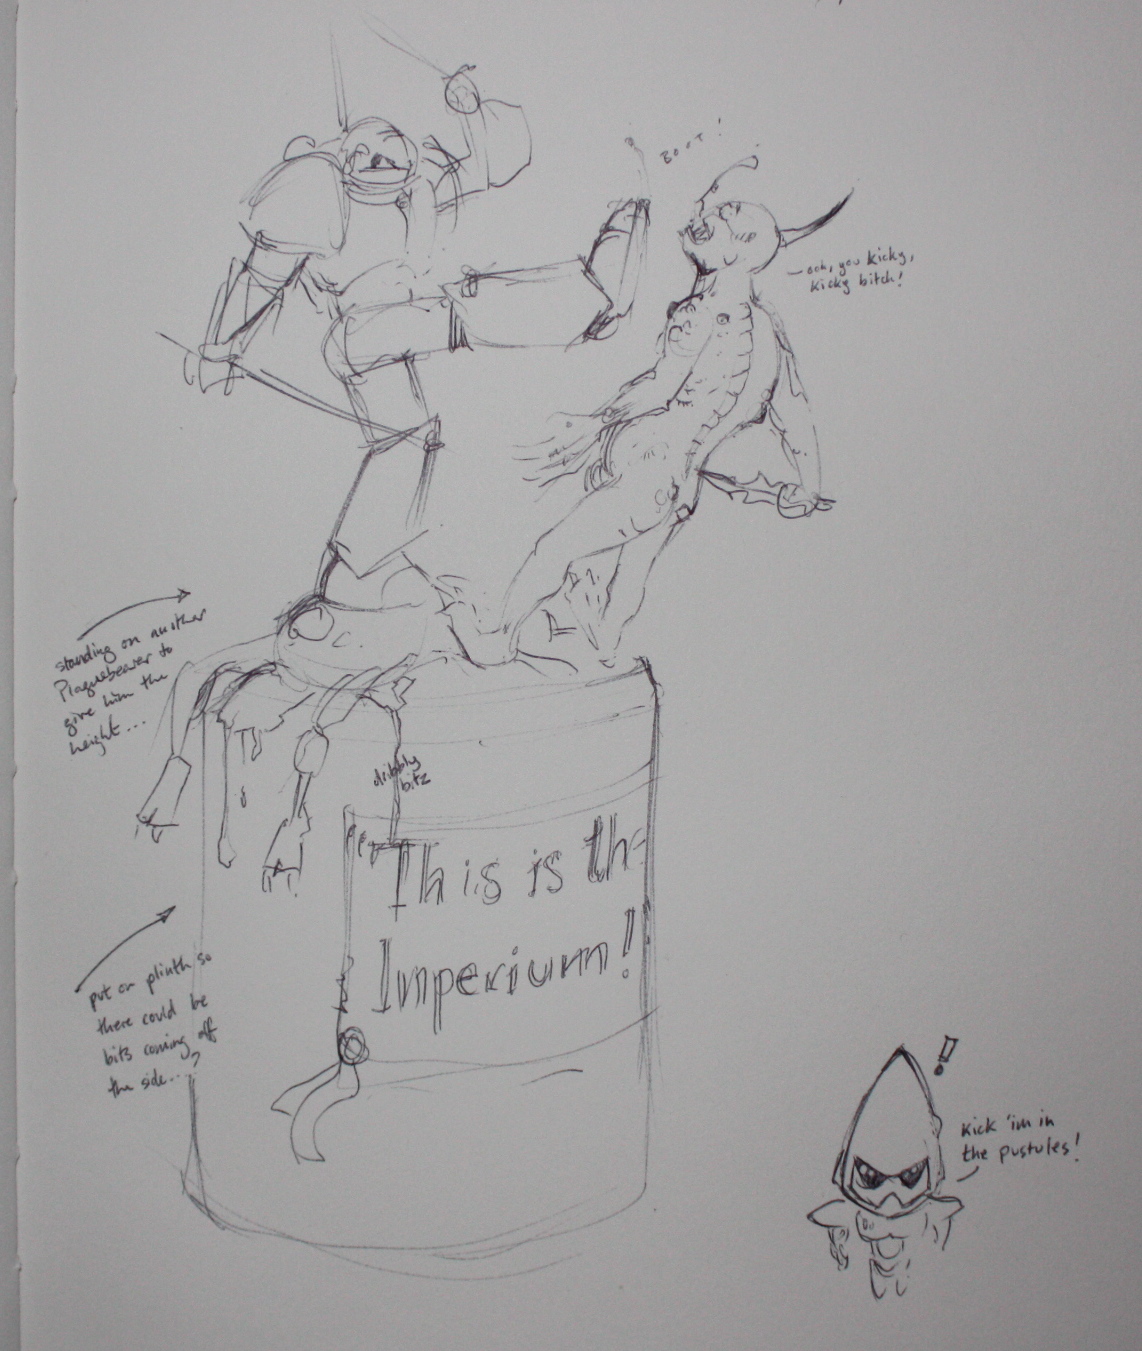 BOOT!
ooh, you kicky,
kicky bitch!
standing on another
Plaguebearer to
give him the
height...
dribbly
bitz
This is the
Imperium!
put on plinth so
there could be
bits coming off
the side...?
!
Kick 'im in
the pustules!